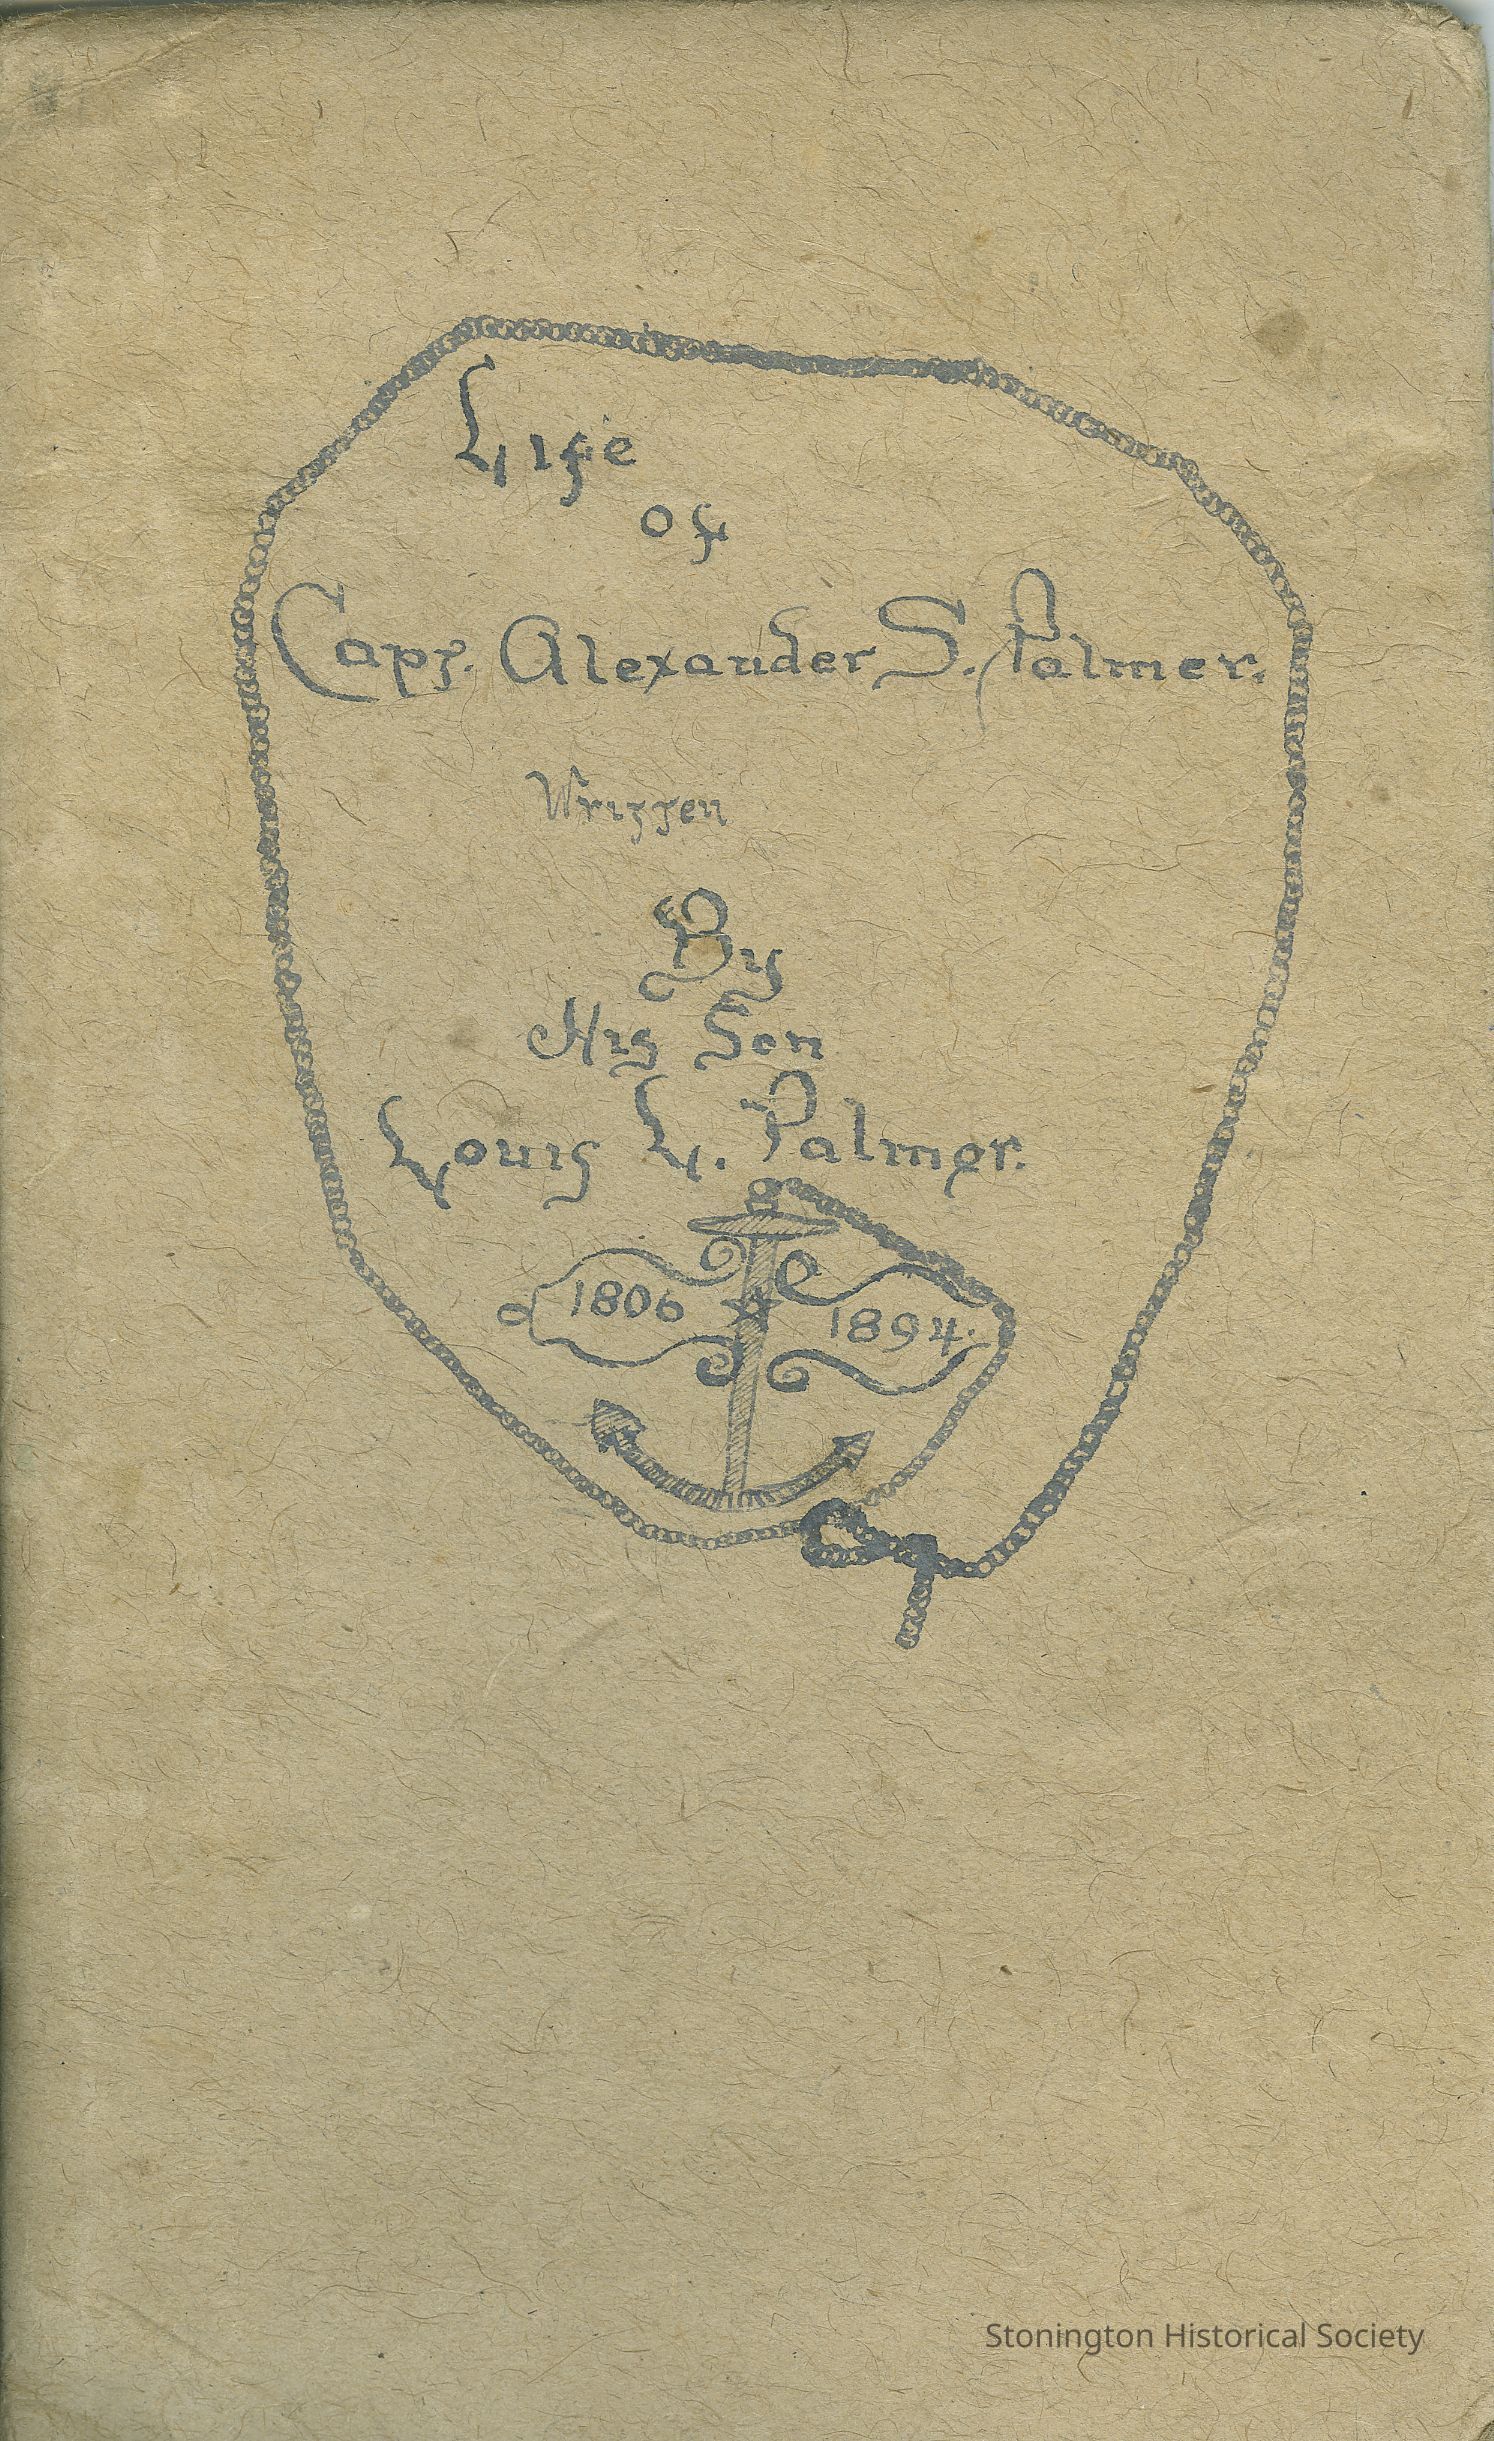 Life
of
Capt. Alexander S. Palmer.
Written
By
His Son
Louis L. Palmer.
1806 1894.
Stonington Historical Society